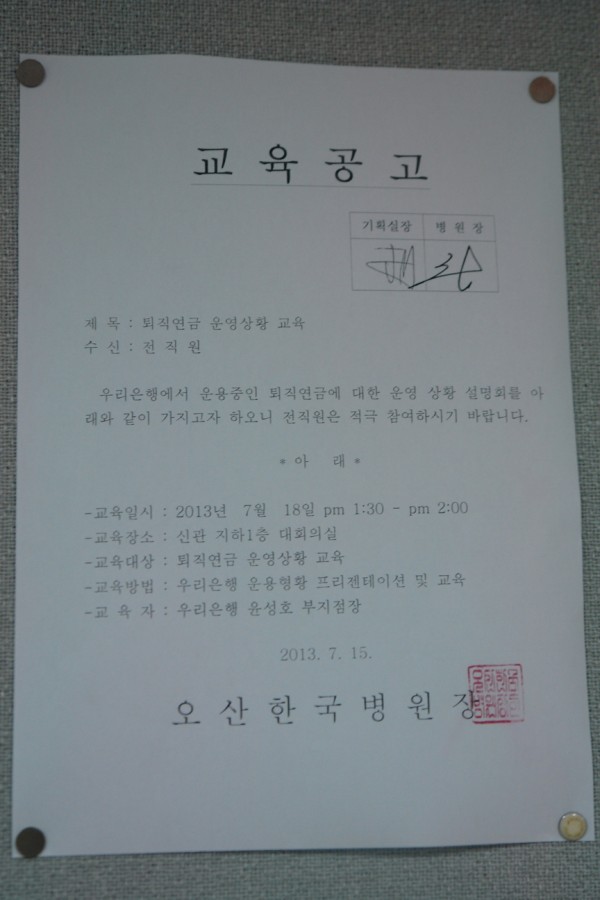 교 육 공 고
기획실장 병 원 장
제 목 : 퇴직연금 운영상황 교육
수 신 : 전 직 원
우리은행에서 운용중인 퇴직연금에 대한 운영 상황 설명회를 아
래와 같이 가지고자 하오니 전직원은 적극 참여하시기 바랍니다.
* 아 래 *
-교육일시 : 2013년 7월 18일 pm 1:30 - pm 2:00
-교육장소 : 신관 지하1층 대회의실
-교육대상 : 퇴직연금 운영상황 교육
-교육방법 : 우리은행 운용형황 프리젠테이션 및 교육
-교 육 자 : 우리은행 윤성호 부지점장
2013. 7. 15.
오 산 한 국 병 원 장